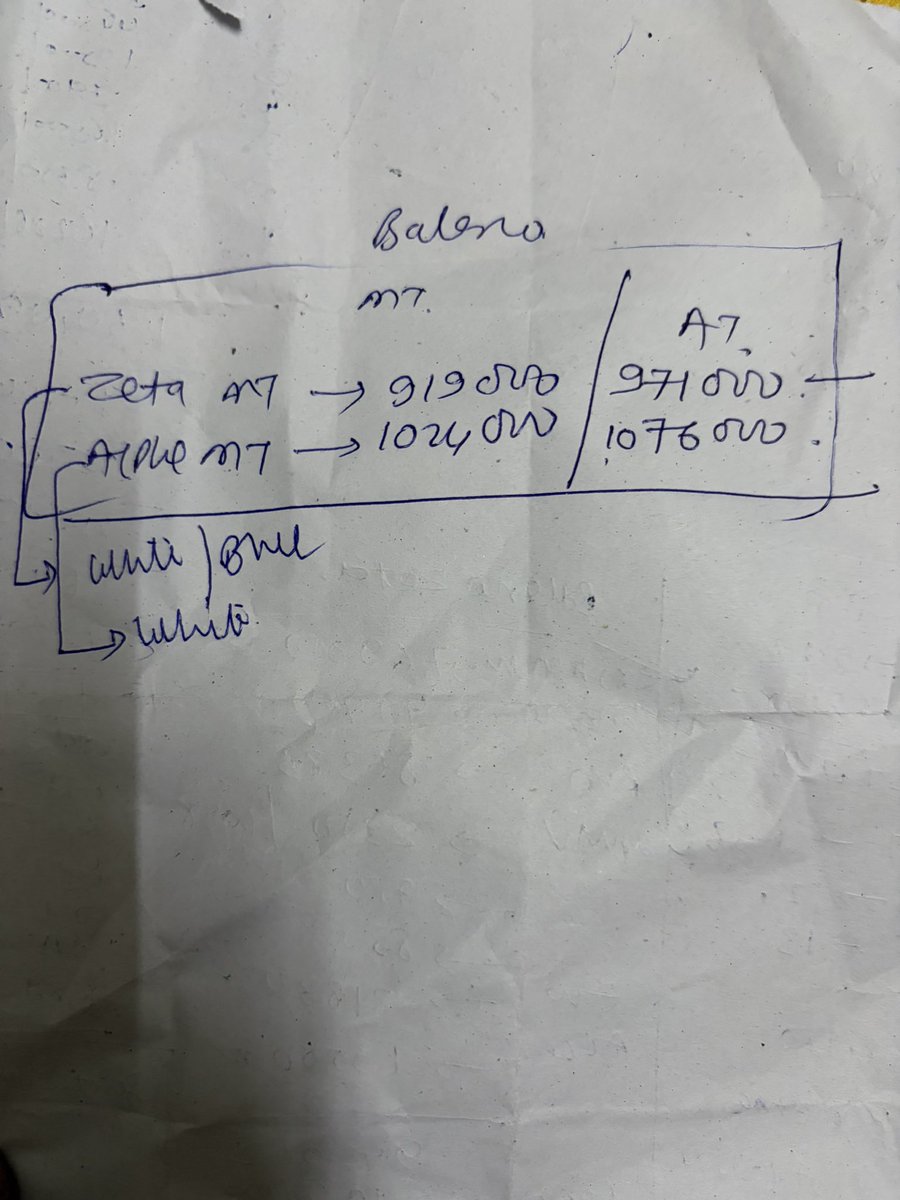 Baleno
MT.
AT.
Zeta MT → 919000 / 971000.
Alpha MT → 1024000 1076000.
White / Blue
White.